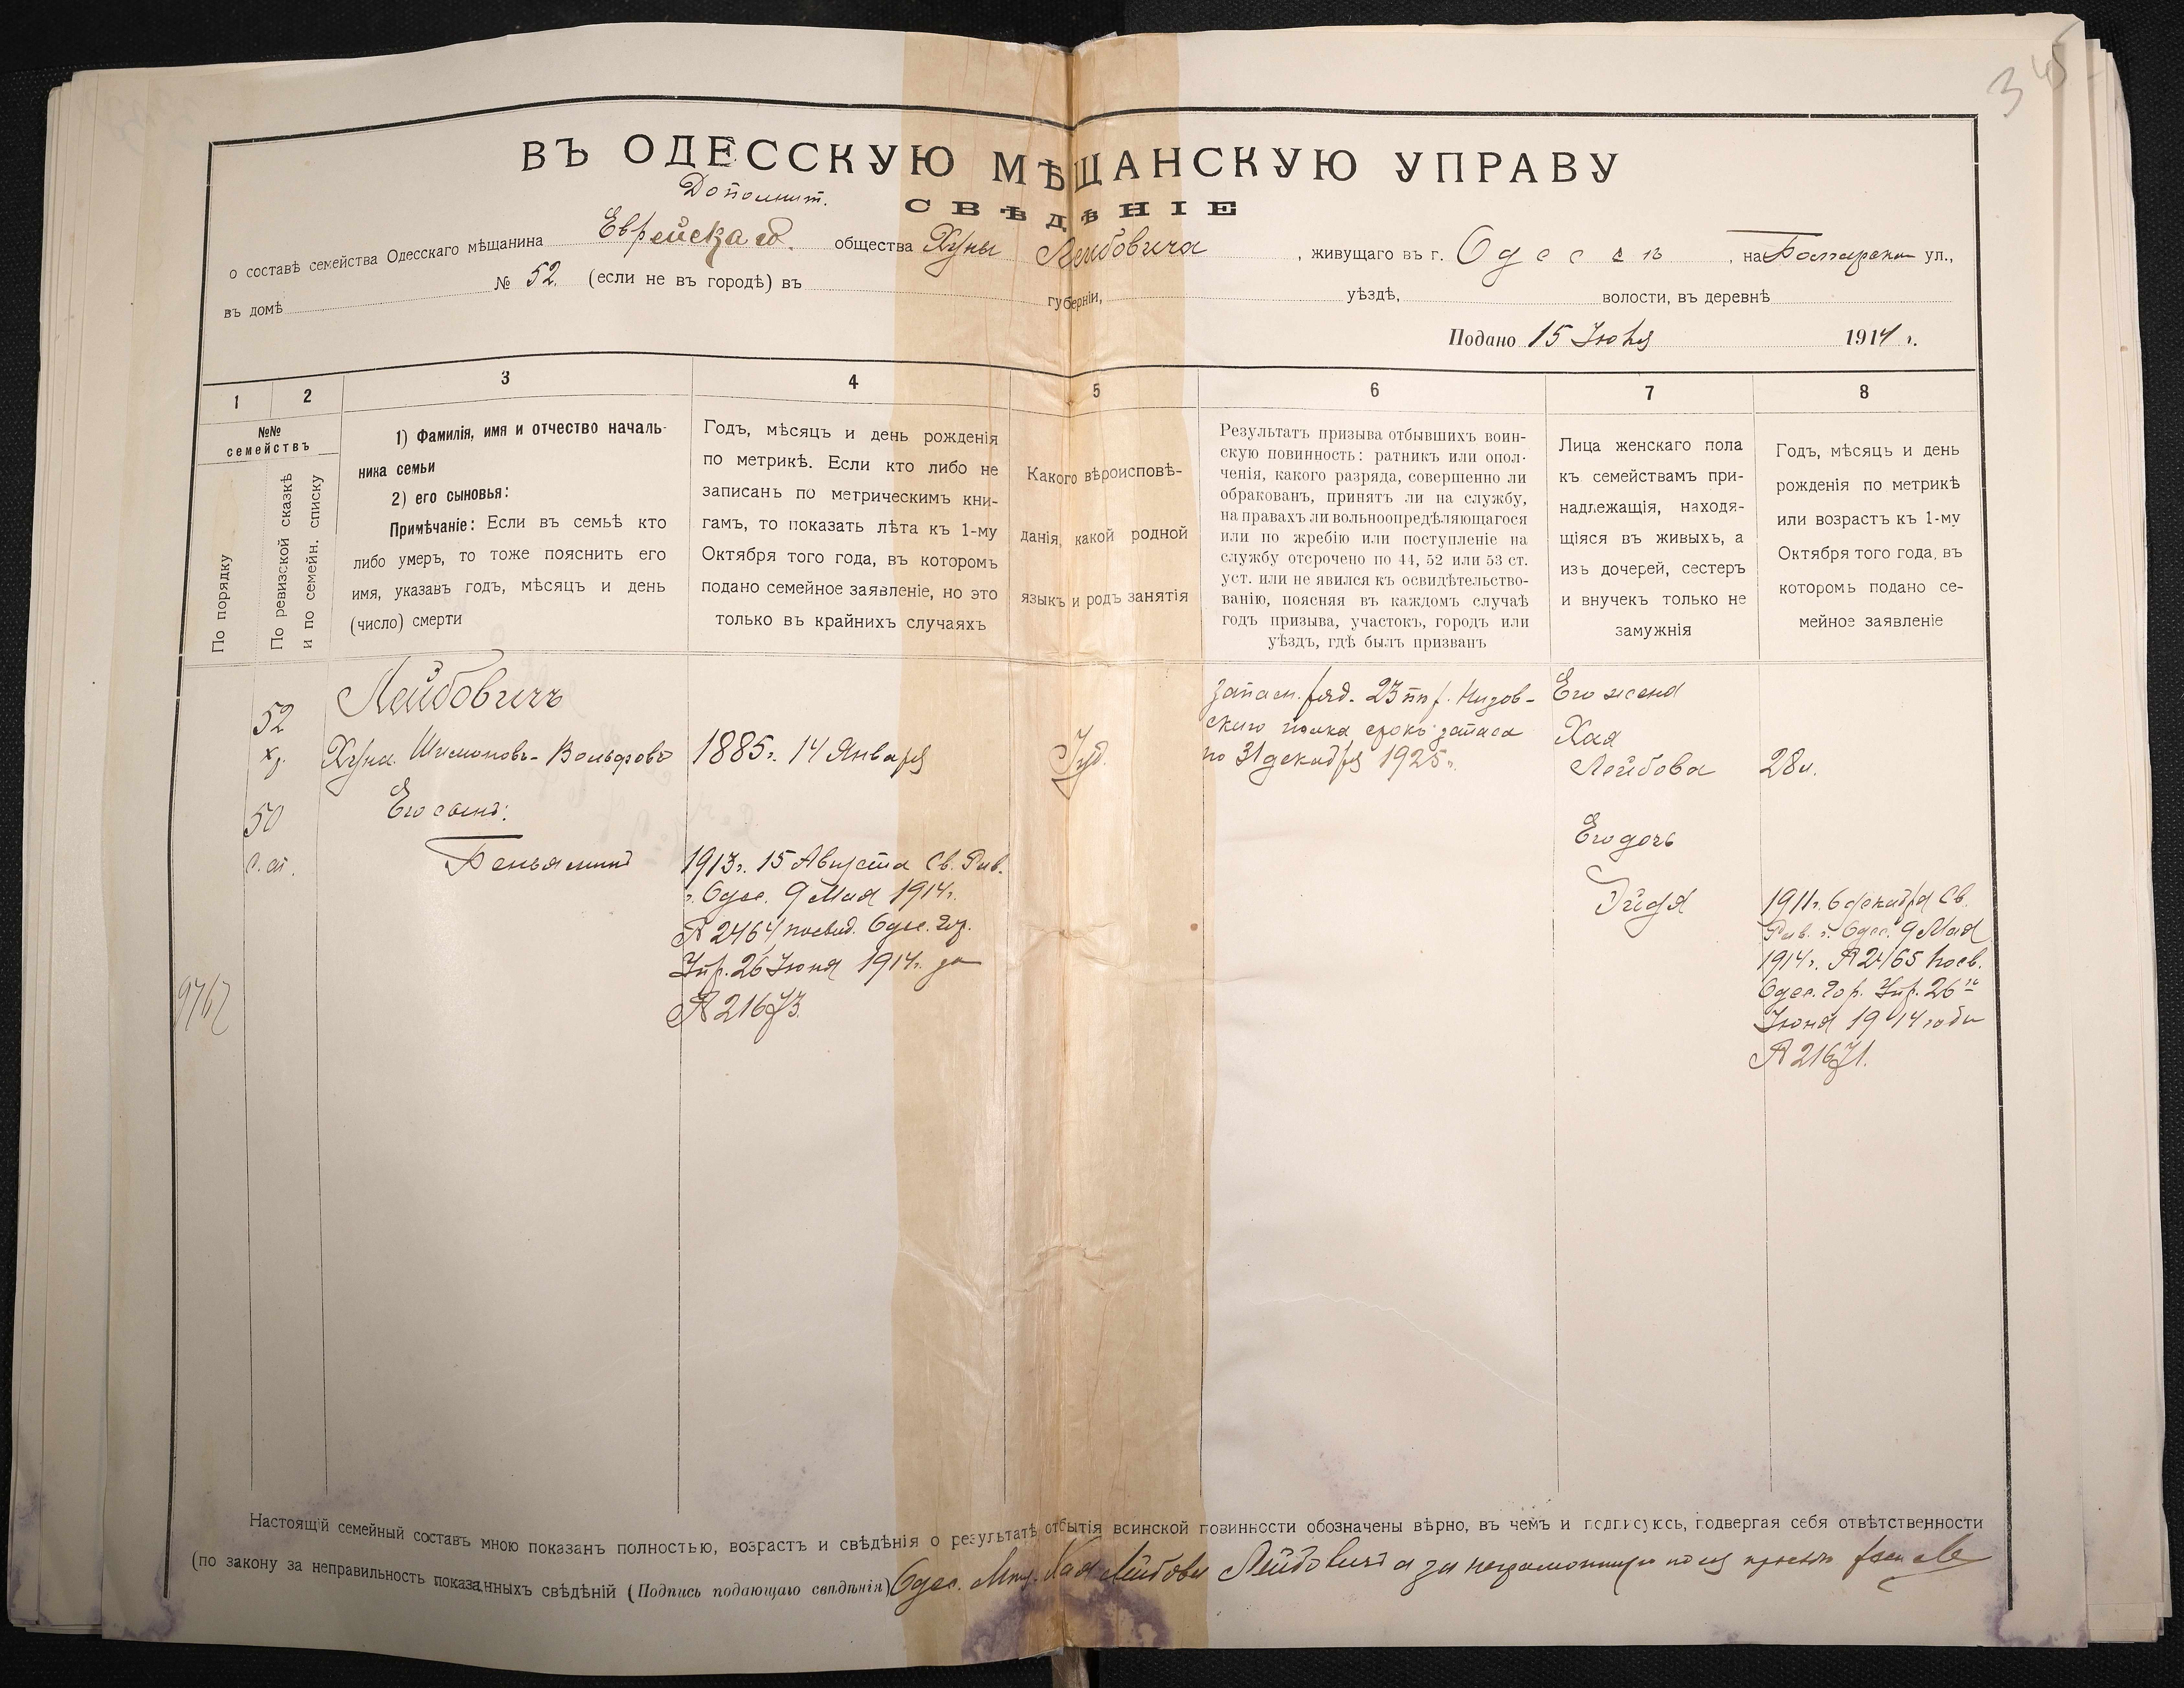 345
ВЪ ОДЕССКУЮ МѢЩАНСКУЮ УПРАВУ
Дополнит.
СВѢДѢНІЕ
о составѣ семейства Одесскаго мѣщанина Еврейскаго общества Хуны Лейбовича, живущаго въ г. Одессѣ, на Болгарской ул.,
въ домѣ № 52. (если не въ городѣ) въ губерніи, уѣздѣ, волости, въ деревнѣ
Подано 15 Іюля 1914 г.
1 2 3 4 5 6 7 8
№№ семействъ
По порядку
По ревизской сказкѣ
и по семейн. списку
1) Фамилія, имя и отчество началь-
ника семьи
2) его сыновья:
Примѣчаніе: Если въ семьѣ кто
либо умеръ, то тоже пояснить его
имя, указавъ годъ, мѣсяцъ и день
(число) смерти
Годъ, мѣсяцъ и день рожденія
по метрикѣ. Если кто либо не
записанъ по метрическимъ кни-
гамъ, то показать лѣта къ 1-му
Октября того года, въ которомъ
подано семейное заявленіе, но это
только въ крайнихъ случаяхъ
Какого вѣроисповѣ-
данія, какой родной
языкъ и родъ занятія
Результатъ призыва отбывшихъ воин-
скую повинность: ратникъ или опол-
ченія, какого разряда, совершенно ли
обракованъ, принятъ ли на службу,
на правахъ ли вольноопредѣляющагося
или по жребію или поступленіе на
службу отсрочено по 44, 52 или 53 ст.
уст. или не явился къ освидѣтельство-
ванію, поясняя въ каждомъ случаѣ
годъ призыва, участокъ, городъ или
уѣздъ, гдѣ былъ призванъ
Лица женскаго пола
къ семействамъ при-
надлежащія, находя-
щіяся въ живыхъ, а
изъ дочерей, сестеръ
и внучекъ только не
замужнія
Годъ, мѣсяцъ и день
рожденія по метрикѣ
или возрастъ къ 1-му
Октября того года, въ
которомъ подано се-
мейное заявленіе
52
50
Лейбовичъ
Хуна Шимоновъ-Вольфовъ
Его сынъ:
Беньяминъ
1885г. 14 Января
1913г. 15 Августа Св. Рав.
г. Одес. 9 Мая 1914г.
№ 2464 посвид. Одес. Гор.
Упр. 26 Іюня 1914г. за
№ 21673.
Іуд.
запасн. ряд. 23 Низов-
скаго полка срокъ запаса
по 31 декабря 1925г.
Его жена
Хая
Лейбова 28 л.
Его дочь
Эйдя
1911г. 6 декабря Св.
Рав. г. Одес. 9 Мая
1914г. № 2465 посв.
Одес. Гор. Упр. 26го
Іюня 1914 года
№ 21671.
Настоящій семейный составъ мною показанъ полностью, возрастъ и свѣдѣнія о результатѣ отбытія воинской повинности обозначены вѣрно, въ чемъ и подписуюсь, подвергая себя отвѣтственности
(по закону за неправильность показанныхъ свѣдѣній (Подпись подающаго свѣдѣнія) Одес. Мѣщ. Хая Лейбова Лейбовичъ а за неграмотную по ея просьбѣ